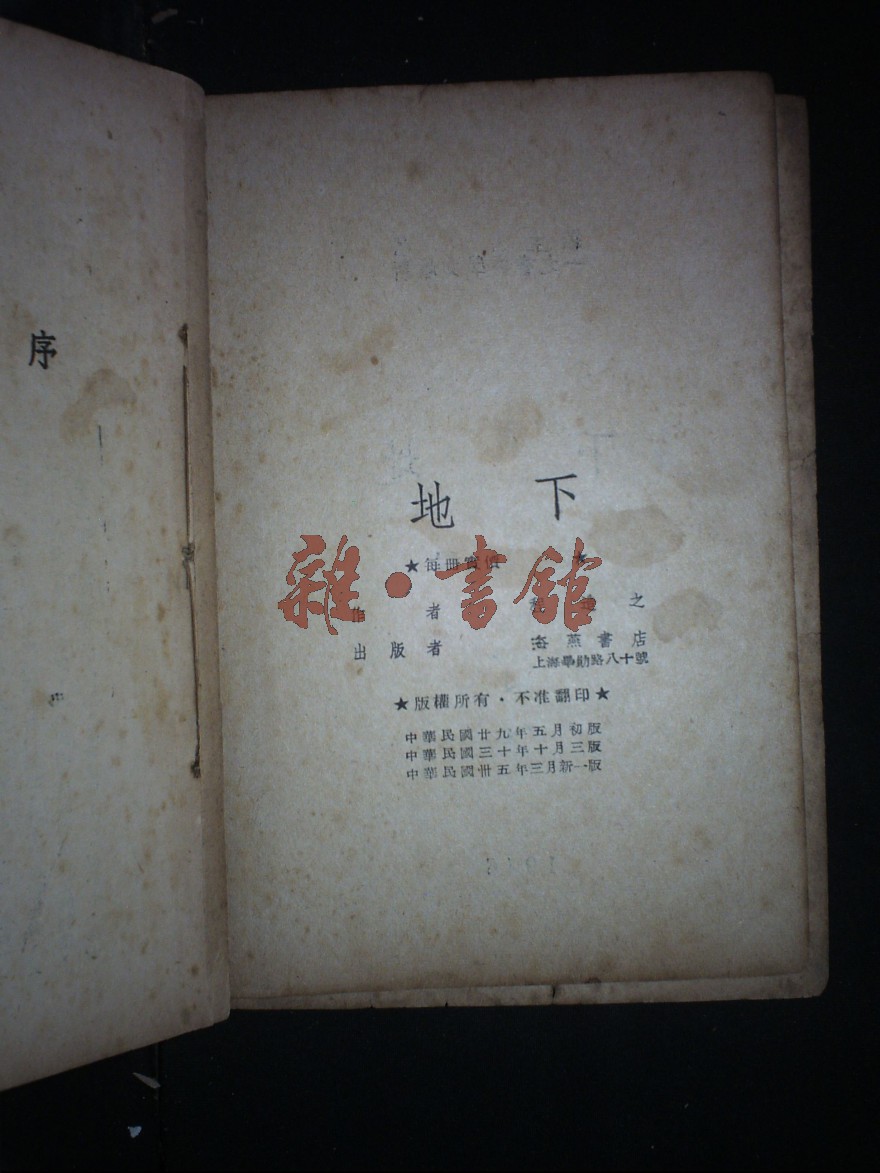 序
地下
★每冊實價 ★
作者 之
出版者 海燕書店
上海學勛路八十號
★版權所有・不准翻印★
中華民國廿九年五月初版
中華民國三十年十月三版
中華民國卅五年三月新一版
雜・書館